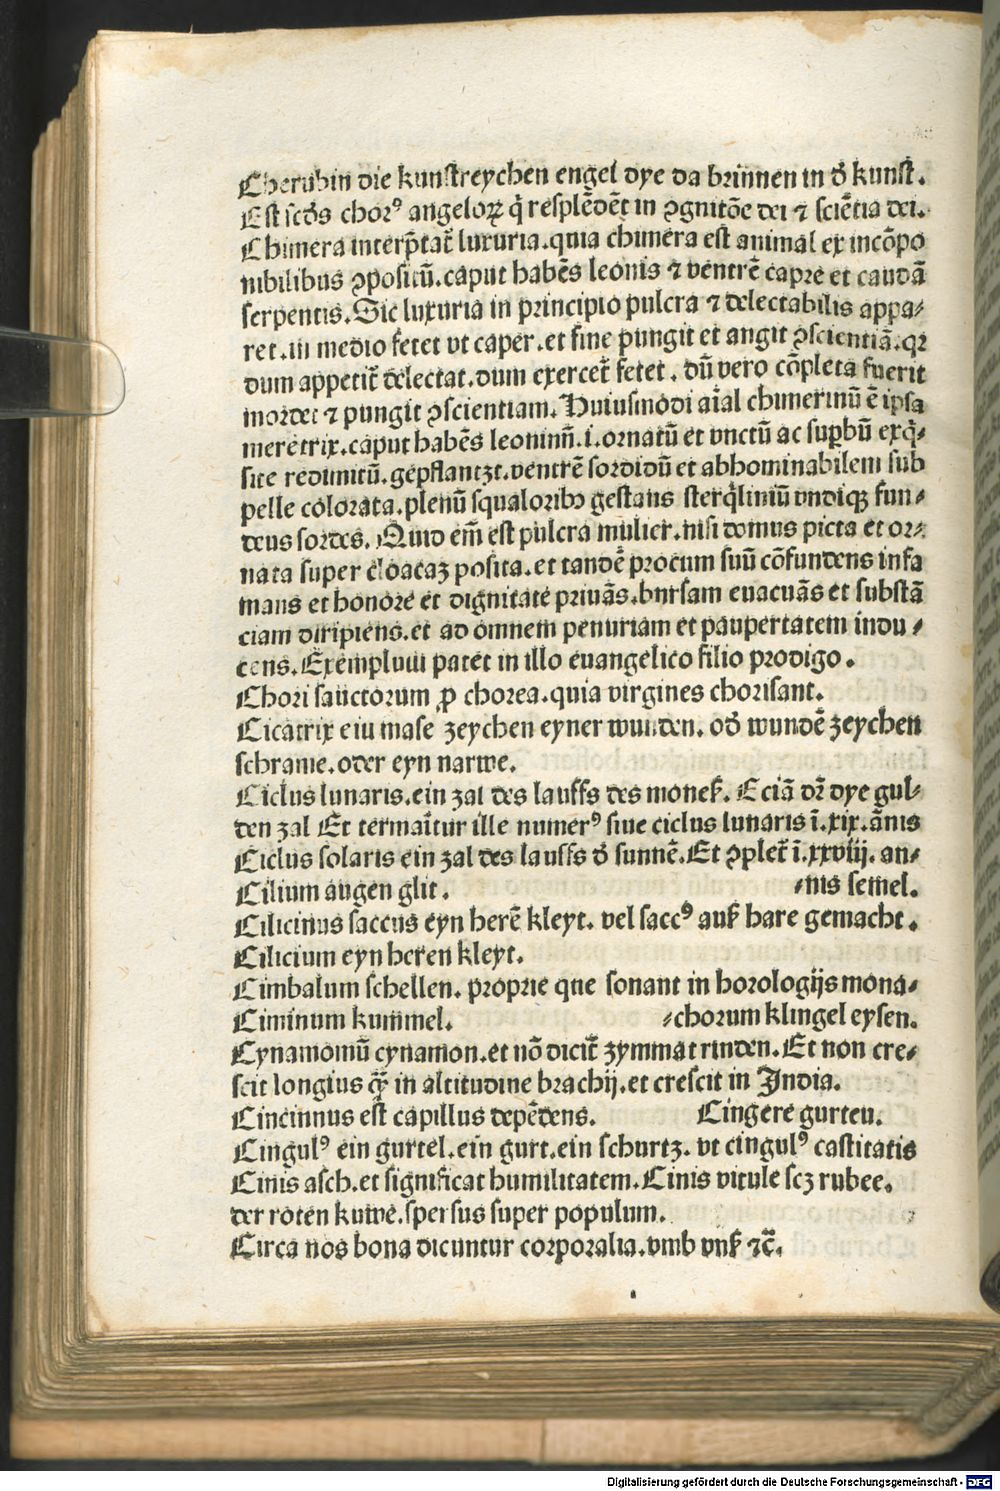 Cherubin die kunstreychen engel dye da brinnen in d̕ kunst.
Est scds̄ chor⁹ angeloꝝ q̇ resplēdēt in ꝯgnitōe dei ⁊ sciētia dei.
Chimera interp̄tat̄ luxuria.quia chimera est animal ex incōpo
nibilibus ꝯpositū.caput habēs leonis ⁊ ventrē capre et caudā
serpentis.Sic luxuria in principio pulcra ⁊ delectabilis appa⸗
ret.in medio fetet vt caper.et fine pungit et angit ꝯscientiā.qꝛ
dum appetit̄ delectat.dum exercet̄ fetet. dū vero cōpleta fuerit
mordet ⁊ pungit ꝯscientiam.Huiusmodi aīal chimerinū ē ipsa
meretrix.caput habēs leoninū.i.ornatū et vnctū ac suꝑbū exq̇⸗
site redimitū.gepflantzt.ventrē sordidū et abhominabilem sub
pelle colorata.plenū squaloribꝫ gestans sterq̇linium vndiqꝫ fun⸗
dens sordes. Quid em̄ est pulcra mulier.nisi domus picta et or⸗
nata super cloacaꝫ posita.et tandē procum suū cōfundens infa
mans et honore et dignitate priuās.bursam euacuās et substā
ciam diripiens.et ad omnem penuriam et paupertatem indu⸗
cens.Exemplum patet in illo euangelico filio prodigo.
Chori sanctorum ꝓ chorea.quia virgines chorisant.
Cicatrix ein mase zeychen eyner wunden. od̕ wundē zeychen
schrame.oder eyn narwe.
Ciclus lunaris.ein zal des lauffs des monetz. Eciā dꝛ dye gul⸗
den zal Et termaītur ille numer⁹ siue ciclus lunaris ī.xix.ānis
Ciclus solaris ein zal des lauffs d̕ sunnē.Et ꝯplet̄ ī.xxviij. an⸗
Cilium augen glit. ⸗nis semel.
Cilicinus saccus eyn herē kleyt. vel sacc⁹ auß hare gemacht.
Cilicium eyn heren kleyt.
Cimbalum schellen. proprie que sonant in horologijs mona⸗
Ciminum kummel. ⸗chorum klingel eysen.
Cynamomū cynamon.et nō dicit̄ zymmat rinden.Et non cre⸗
scit longius qꝫ̄ in altitudine brachij.et crescit in India.
Cincinnus est capillus depēdens. Cingere gurten.
Cingul⁹ ein gurtel.ein gurt.ein schurtz. vt cingul⁹ castitatis
Cinis asch.et significat humilitatem.Cinis vitule scꝫ rubee.
der roten kuwe.spersus super populum.
Circa nos bona dicuntur corporalia.vmb vnß ⁊c̄.
Digitalisierung gefördert durch die Deutsche Forschungsgemeinschaft - DFG